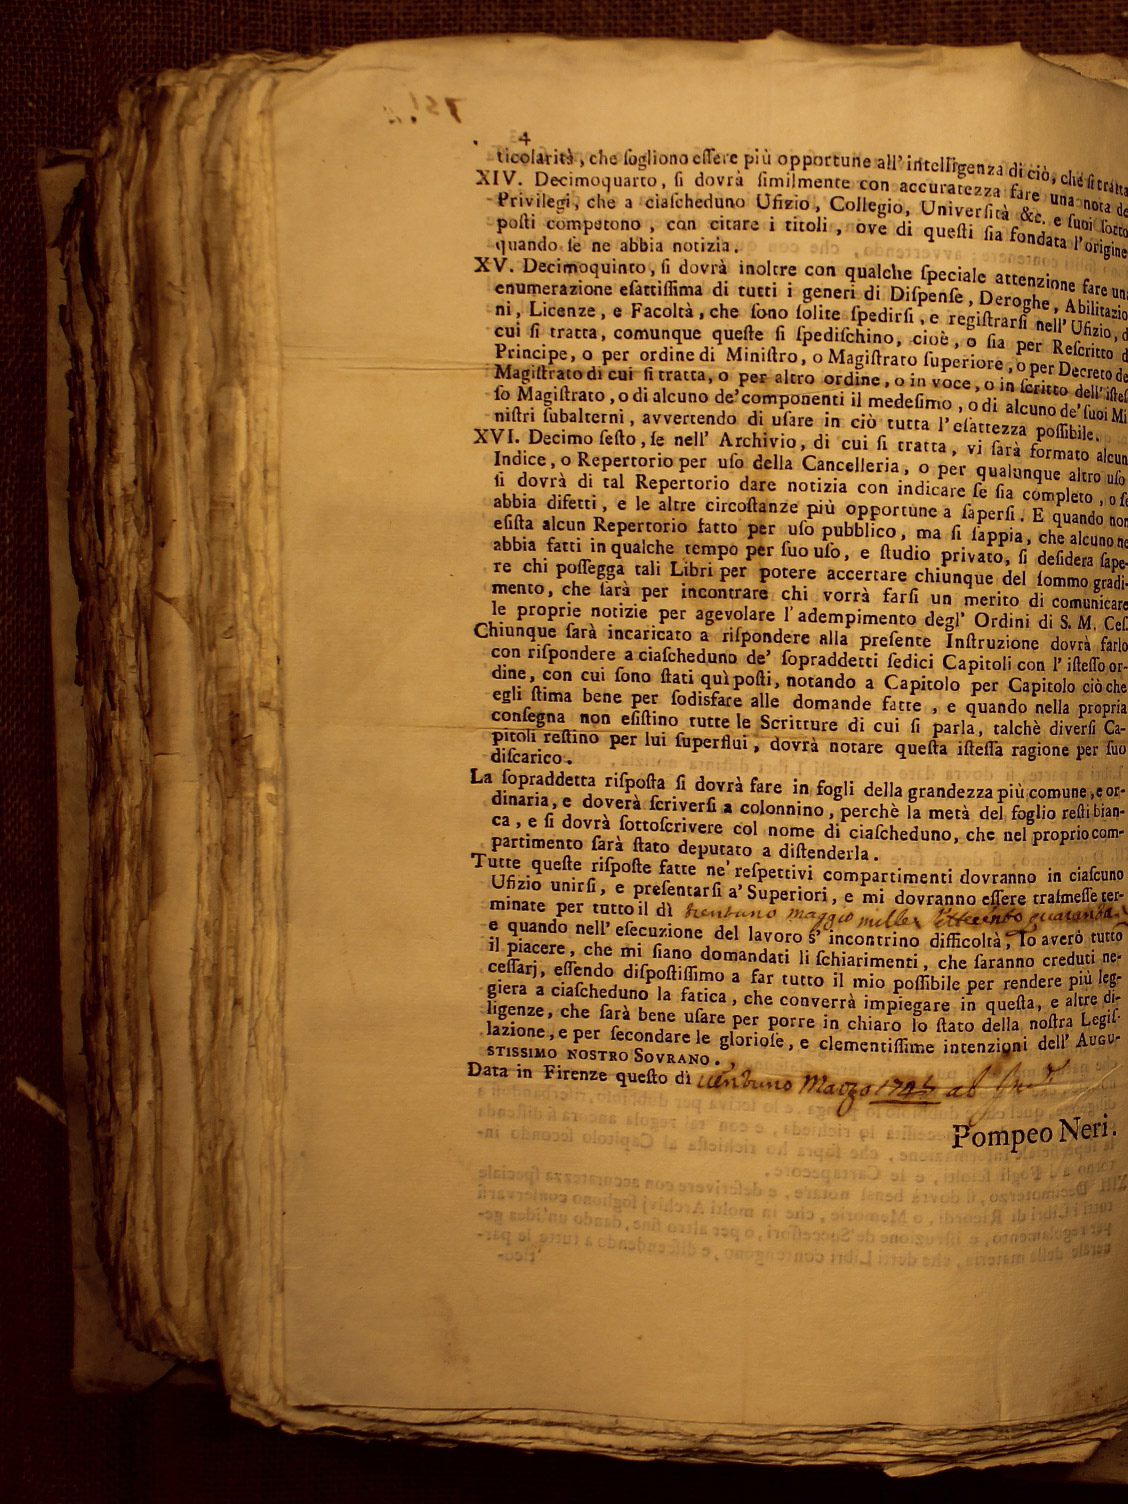 4
ticolarità, che ſogliono eſſere più opportune all' intelligenza di ciò, che ſi tratta
XIV. Decimoquarto, ſi dovrà ſimilmente con accuratezza fare una nota de
Privilegi, che a ciaſcheduno Ufizio, Collegio, Univerſità &c. e ſuoi ſotto
poſti competono, con citare i titoli, ove di queſti ſia fondata l'origine
quando ſe ne abbia notizia.
XV. Decimoquinto, ſi dovrà inoltre con qualche ſpeciale attenzione fare una
enumerazione eſattiſſima di tutti i generi di Diſpenſe, Deroghe, Abilitazio
ni, Licenze, e Facoltà, che ſono ſolite ſpedirſi, e regiſtrarſi nell' Ufizio, d
cui ſi tratta, comunque queſte ſi ſpediſchino, cioè, o ſia per Reſcritto d
Principe, o per ordine di Miniſtro, o Magiſtrato ſuperiore, o per Decreto de
Magiſtrato di cui ſi tratta, o per altro ordine, o in voce, o in ſcritto dell' iſteſ
ſo Magiſtrato, o di alcuno de' componenti il medeſimo, o di alcuno de' ſuoi Mi
niſtri ſubalterni, avvertendo di uſare in ciò tutta l'eſattezza poſſibile.
XVI. Decimo ſeſto, ſe nell' Archivio, di cui ſi tratta, vi ſarà formato alcun
Indice, o Repertorio per uſo della Cancelleria, o per qualunque altro uſo
ſi dovrà di tal Repertorio dare notizia con indicare ſe ſia completo, o ſe
abbia difetti, e le altre circoſtanze più opportune a ſaperſi. E quando non
eſiſta alcun Repertorio fatto per uſo pubblico, ma ſi ſappia, che alcuno ne
abbia fatti in qualche tempo per ſuo uſo, e ſtudio privato, ſi deſidera ſape-
re chi poſſegga tali Libri per potere accertare chiunque del ſommo gradi-
mento, che ſarà per incontrare chi vorrà farſi un merito di comunicare
le proprie notizie per agevolare l' adempimento degl' Ordini di S. M. Ceſ.
Chiunque ſarà incaricato a riſpondere alla preſente Inſtruzione dovrà farlo
con riſpondere a ciaſcheduno de' ſopraddetti ſedici Capitoli con l' iſteſſo or-
dine, con cui ſono ſtati quì poſti, notando a Capitolo per Capitolo ciò che
egli ſtima bene per ſodisfare alle domande fatte, e quando nella propria
conſegna non eſiſtino tutte le Scritture di cui ſi parla, talchè diverſi Ca-
pitoli reſtino per lui ſuperflui, dovrà notare queſta iſteſſa ragione per ſuo
diſcarico.
La ſopraddetta riſpoſta ſi dovrà fare in fogli della grandezza più comune, e or-
dinaria, e doverà ſcriverſi a colonnino, perchè la metà del foglio reſti bian-
ca, e ſi dovrà ſottoſcrivere col nome di ciaſcheduno, che nel proprio com-
partimento ſarà ſtato deputato a diſtenderla.
Tutte queſte riſpoſte fatte ne' reſpettivi compartimenti dovranno in ciaſcuno
Ufizio unirſi, e preſentarſi a' Superiori, e mi dovranno eſſere traſmeſſe ter-
minate per tutto il dì trentuno maggio mille settecento quaranta
e quando nell' eſecuzione del lavoro s' incontrino difficoltà, Io averò tutto
il piacere, che mi ſiano domandati li ſchiarimenti, che ſaranno creduti ne-
ceſſarj, eſſendo diſpoſtiſſimo a far tutto il mio poſſibile per rendere più leg-
giera a ciaſcheduno la fatica, che converrà impiegare in queſta, e altre di-
ligenze, che ſarà bene uſare per porre in chiaro lo ſtato della noſtra Legiſ-
lazione, e per ſecondare le glorioſe, e clementiſſime intenzioni dell' AUGU-
STISSIMO NOSTRO SOVRANO.
Data in Firenze queſto dì ventuno Marzo 1745 ab
Pompeo Neri.